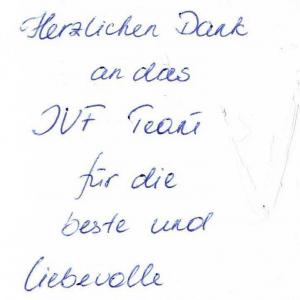 Herzlichen Dank
an das
IVF Team
für die
beste und
liebevolle